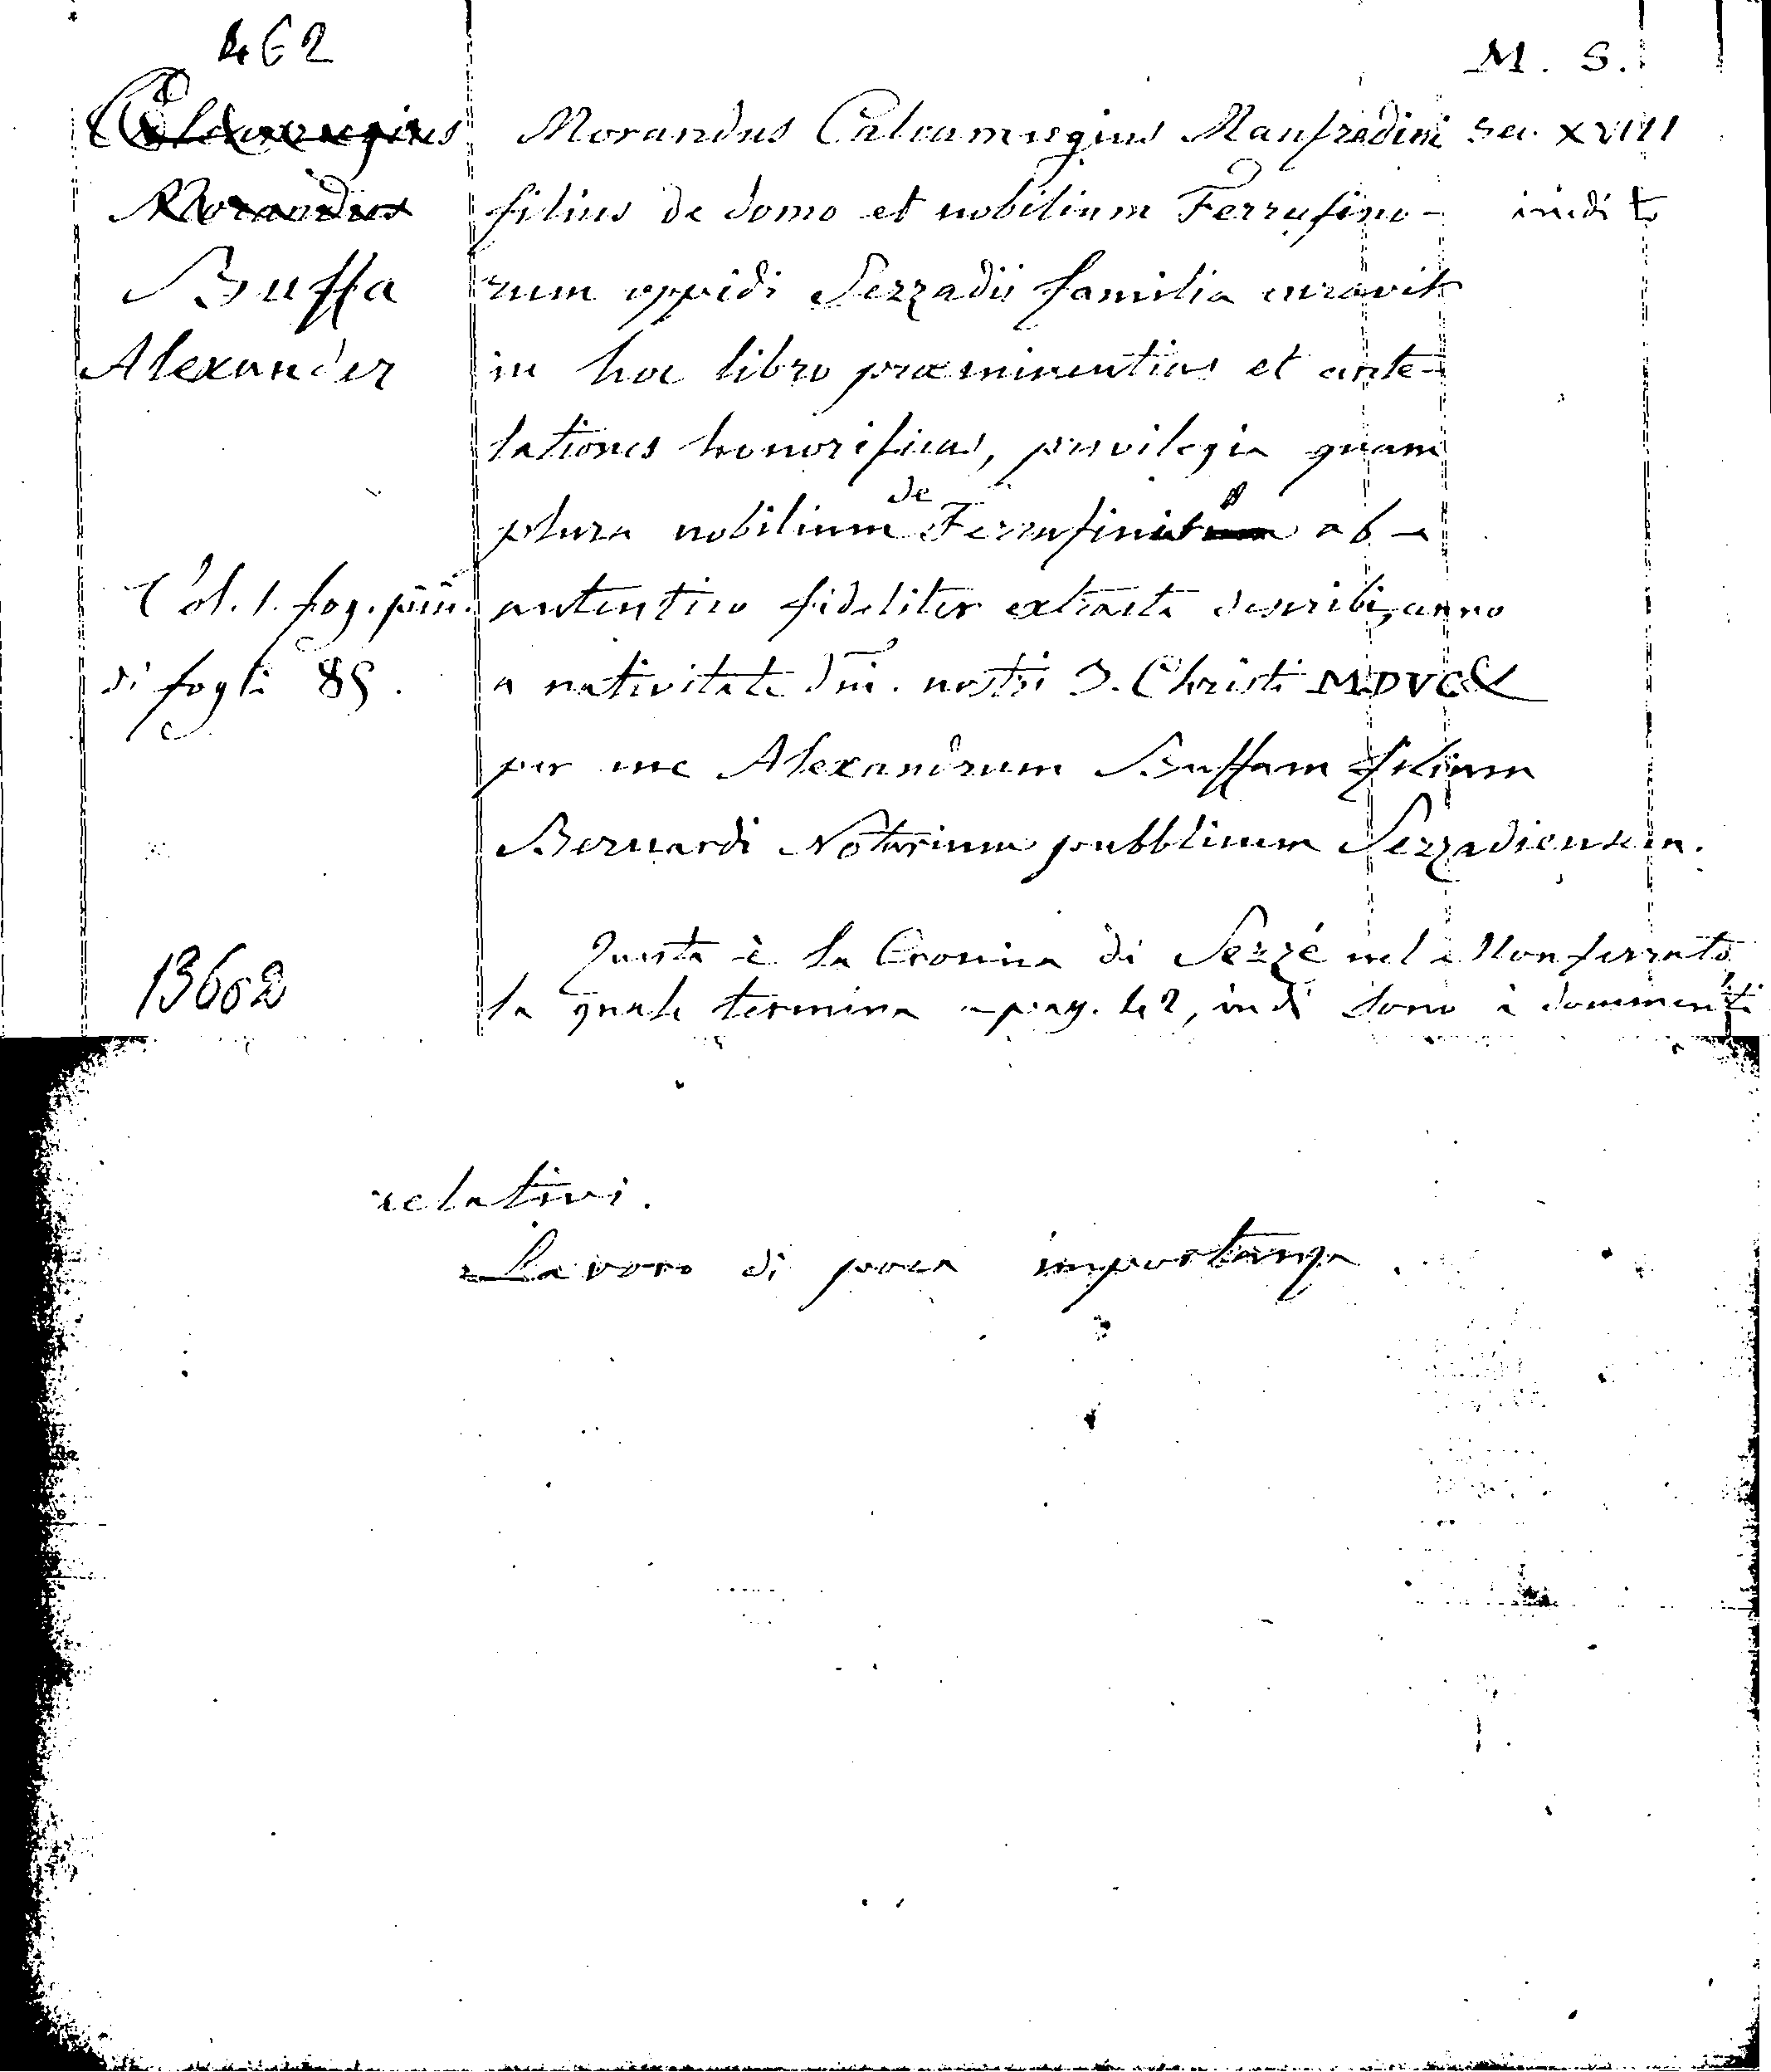 462
M. S.
Calcamugius
Morandus
Buffa
Alexander
Vol. 1. fog. pic.
di fogli 85.
13602
Morandus Calcamugius Manfredini
filius de domo et nobilium Ferrufino-
rum oppidi Sezzadii familia curavit
in hoc libro præminentias et ante-
lationes honorificas, privilegia quam
plura nobilium de Ferrufinis ab
autentico fideliter extracta describi, anno
a nativitate Dni. nostri J. Christi MDVC
per me Alexandrum Buffam filium
Bernardi Notarium pubblicum Sezzadiensem.
Sec. XVIII
inedito
Questa è la Cronica di Sezzé nel Monferrato
la quale termina a pag. 42, indi sono i documenti
relativi.
Lavoro di poca importanza.